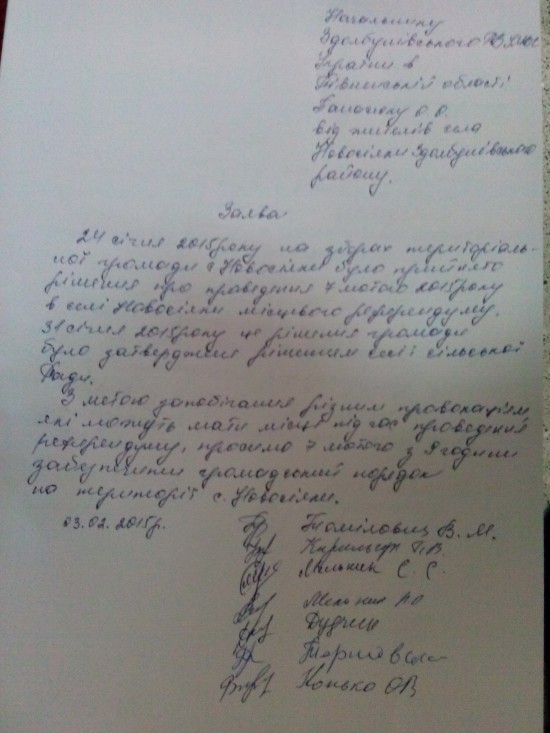 Начальнику
Здолбунівського РВ УМВС
України в
Рівненській області
О. О.
від жителів села
Новосілки Здолбунівського
району.
Заява
24 січня 2015 року на зборах територіаль-
ної громади с. Новосілки було прийнято
рішення про проведення 7 лютого 2015 року
в селі Новосілки місцевого референдуму.
31 січня 2015 року це рішення громади
було затверджене рішенням сесії сільської
Ради.
З метою запобігання різним провокаціям
які можуть мати місце під час проведення
референдуму, просимо 7 лютого з 9 години
забезпечити громадський порядок
на території с. Новосілки.
03.02.2015р.
Томілович В. М.
Кирильчук В.
Мельник С. С.
Мельник
Дудчик
Конько ОВ